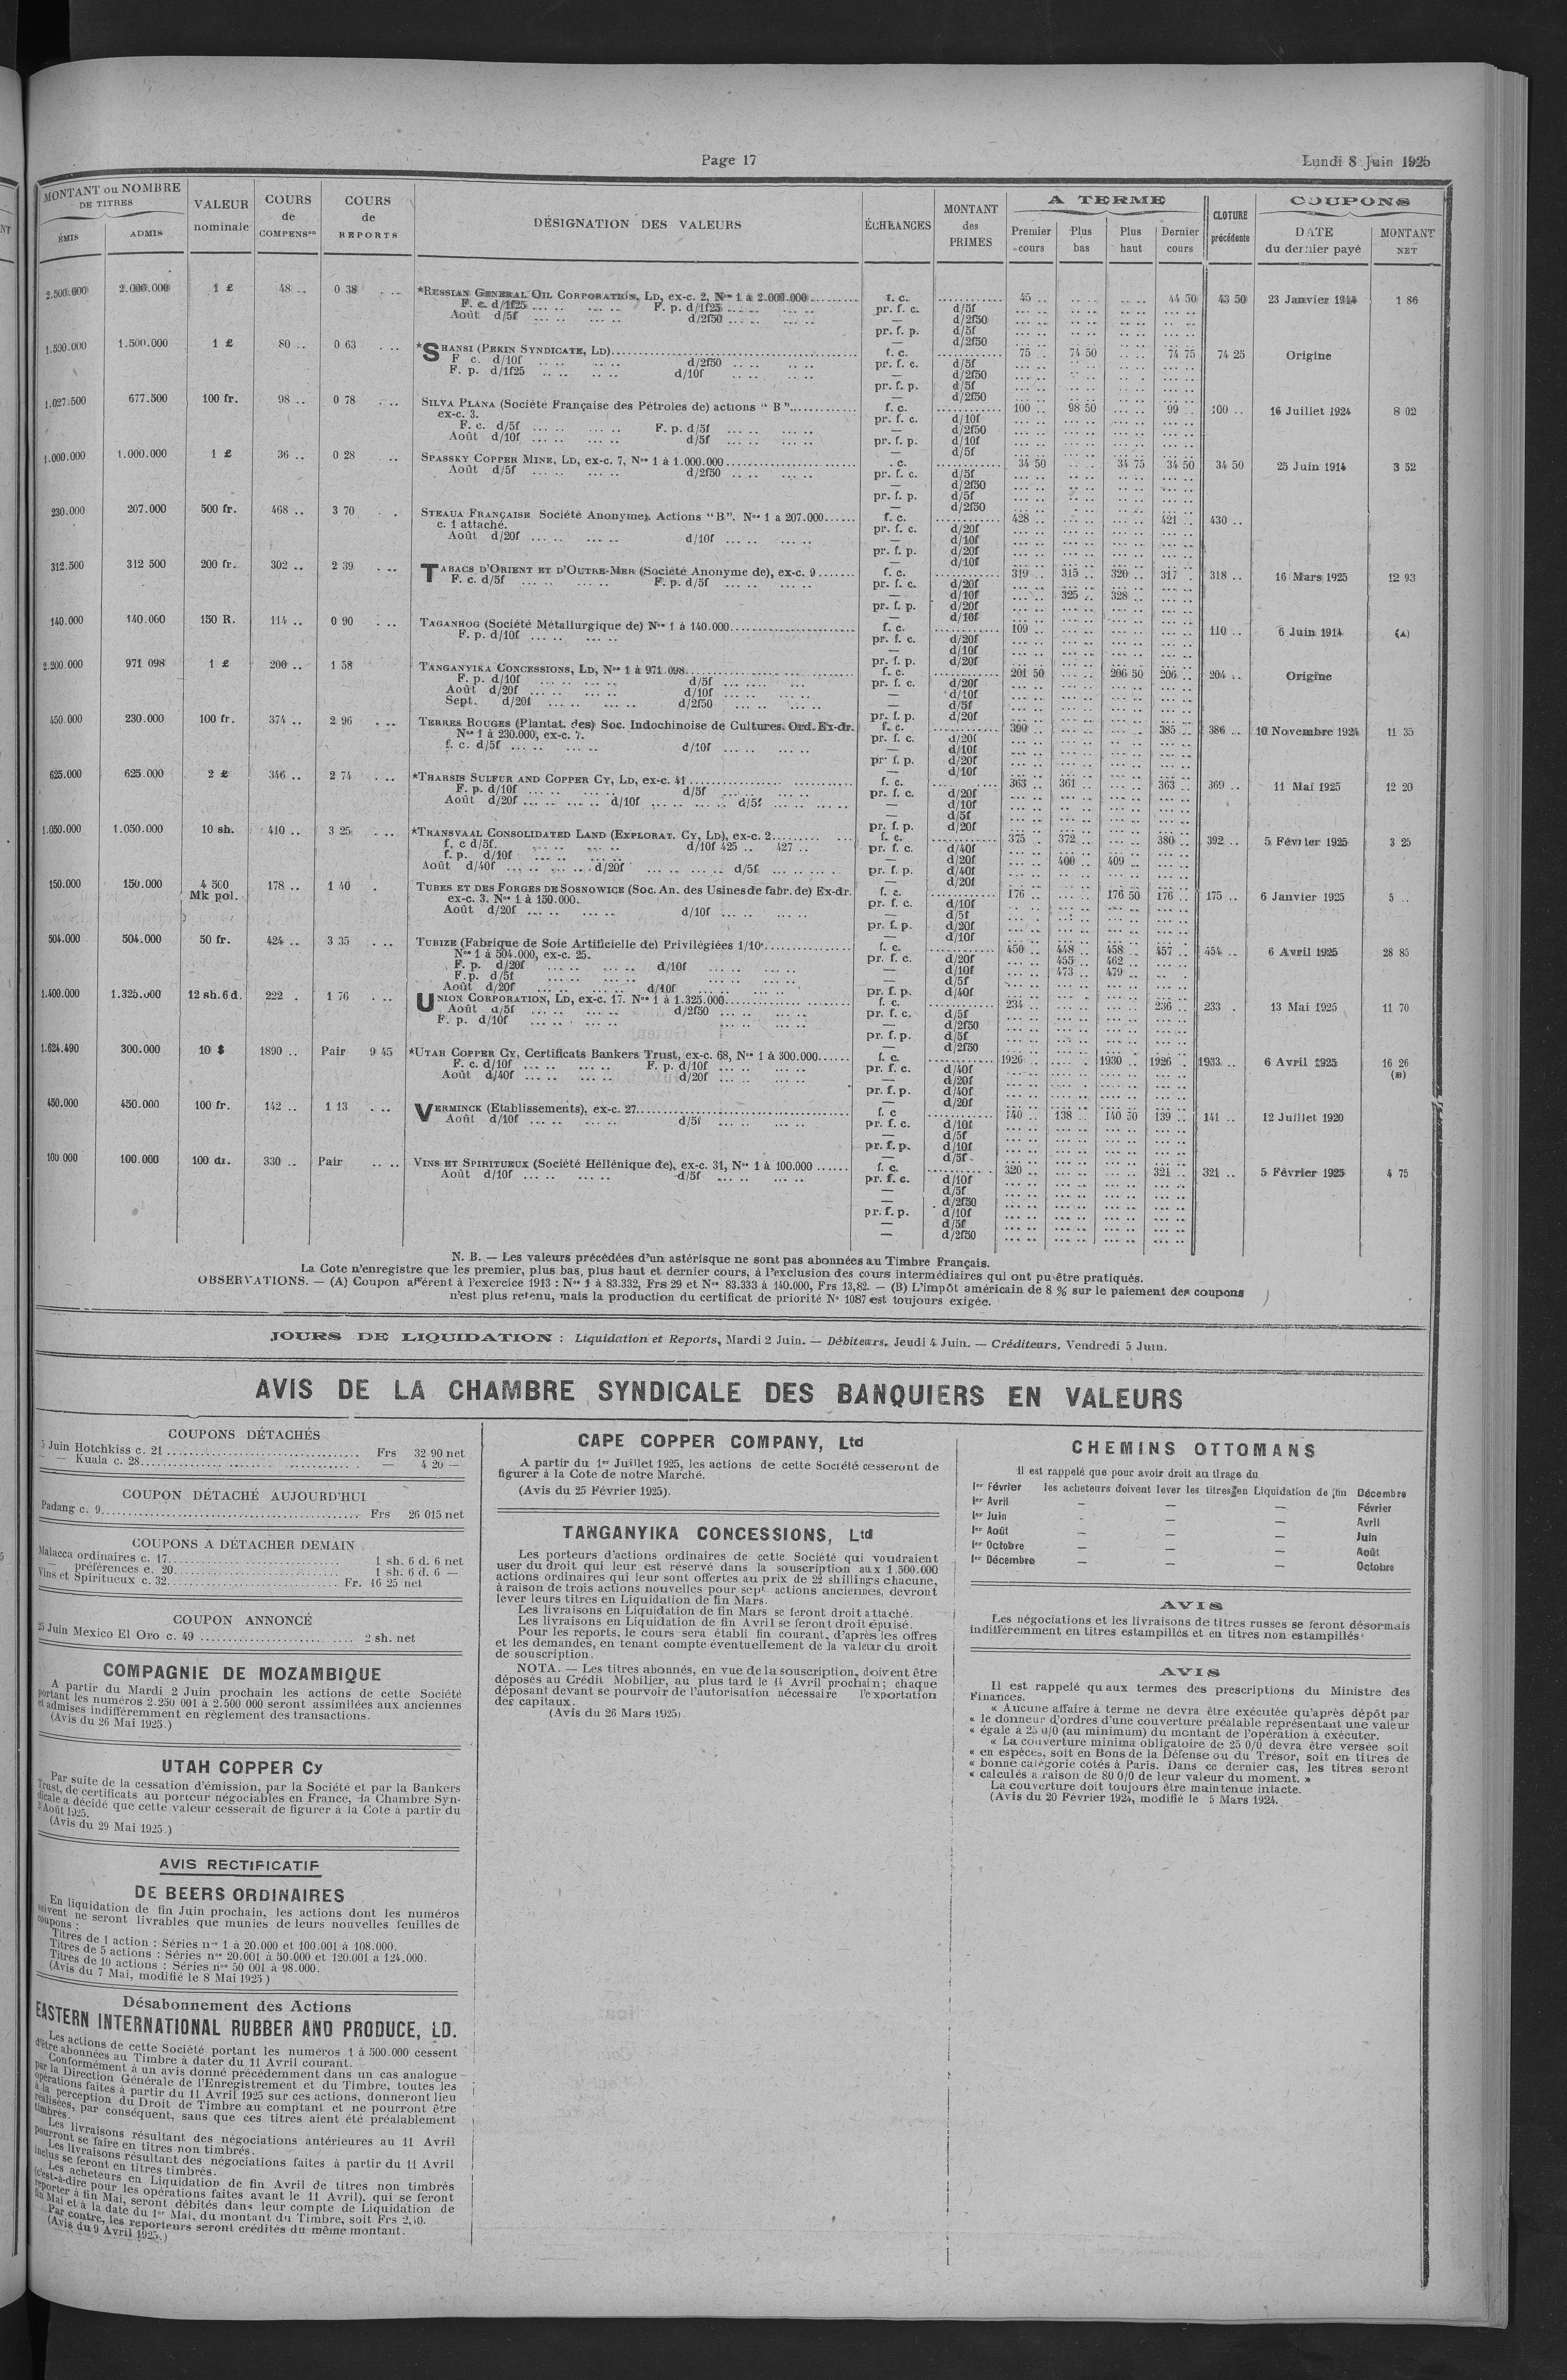 Page 17
Lundi 8 Juin 1925
MONTANT ou NOMBRE DE TITRES
ÉMIS
ADMIS
VALEUR nominale
COURS de COMPENSon
COURS de REPORTS
DÉSIGNATION DES VALEURS
ÉCHEANCES
MONTANT des PRIMES
A TERME
Premier cours
Plus bas
Plus haut
Dernier cours
CLOTURE précédente
COUPONS
DATE du dernier payé
MONTANT NET
2.500.000 2.000.000 1 £ 48 .. 0 38 *RUSSIAN GENERAL OIL CORPORATION, LD, ex-c. 2, Nos 1 à 2.000.000 f. c. 45 .. 44 50 43 50 23 Janvier 1914 1 86
F. c. d/1f25 F. p. d/1f25 pr. f. c. d/5f
Août d/5f d/2f50 — d/2f50
pr. f. p. d/5f
— d/2f50
1.500.000 1.500.000 1 £ 80 .. 0 63 *SHANSI (PEKIN SYNDICATE, LD) f. c. 75 .. 74 50 74 75 74 25 Origine
F c. d/10f d/2f50 pr. f. c. d/5f
F. p. d/1f25 d/10f — d/2f50
pr. f. p. d/5f
— d/2f50
1.027.500 677.500 100 fr. 98 .. 0 78 SILVA PLANA (Société Française des Pétroles de) actions " B " f. c. 100 .. 98 50 99 .. 100 .. 16 Juillet 1924 8 02
ex-c. 3. pr. f. c. d/10f
F. c. d/5f F. p. d/5f — d/2f50
Août d/10f d/5f pr. f. p. d/10f
— d/5f
1.000.000 1.000.000 1 £ 36 .. 0 28 SPASSKY COPPER MINE, LD, ex-c. 7, Nos 1 à 1.000.000 . c. 34 50 34 75 34 50 34 50 25 Juin 1914 3 52
Août d/5f d/2f50 pr. f. c. d/5f
— d/2f50
pr. f. p. d/5f
— d/2f50
230.000 207.000 500 fr. 468 .. 3 70 STEAUA FRANÇAISE Société Anonyme). Actions "B". Nos 1 a 207.000 f. c. 428 .. 421 .. 430 ..
c. 1 attaché. pr. f. c. d/20f
Août d/20f d/10f — d/10f
pr. f. p. d/20f
— d/10f
312.500 312 500 200 fr. 302 .. 2 39 TABACS D'ORIENT ET D'OUTRE-MER (Société Anonyme de), ex-c. 9 f. c. 319 .. 315 .. 320 .. 317 . 318 .. 16 Mars 1925 12 93
F. c. d/5f F. p. d/5f pr. f. c. d/20f
— d/10f 325 .. 328 ..
pr. f. p. d/20f
— d/10f
140.000 140.000 150 R. 114 .. 0 90 TAGANROG (Société Métallurgique de) Nos 1 à 140.000 f. c. 109 .. 110 .. 6 Juin 1914 (A)
F. p. d/10f pr. f. c. d/20f
— d/10f
pr. f. p. d/20f
2.200.000 971 098 1 £ 200 .. 1 58 TANGANYIKA CONCESSIONS, LD, Nos 1 à 971.098 f. c. 201 50 206 50 206 .. 204 .. Origine
F. p. d/10f d/5f pr. f. c. d/20f
Août d/20f d/10f — d/10f
Sept. d/20f d/2f50 — d/5f
pr. f. p. d/20f
450.000 230.000 100 fr. 374 .. 2 96 TERRES ROUGES (Plantat. des) Soc. Indochinoise de Cultures. Ord. Ex-dr. f. c. 390 .. 385 .. 386 .. 10 Novembre 1924 11 35
Nos 1 à 230.000, ex-c. 7. pr. f. c. d/20f
f. c. d/5f d/10f — d/10f
pr. f. p. d/20f
— d/10f
625.000 625.000 2 £ 346 .. 2 74 *THARSIS SULFUR AND COPPER CY, LD, ex-c. 41 f. c. 363 .. 361 .. 363 .. 369 .. 11 Mai 1925 12 20
F. p. d/10f d/5f pr. f. c. d/20f
Août d/20f d/10f d/5f — d/10f
— d/5f
pr. f. p. d/20f
1.050.000 1.050.000 10 sh. 410 .. 3 25 *TRANSVAAL CONSOLIDATED LAND (EXPLORAT. CY, LD), ex-c. 2 f. c. 375 .. 372 .. 380 .. 392 .. 5 Février 1925 3 25
f. c d/5f. d/10f 425 .. 427 .. pr. f. c. d/40f
f. p. d/10f — d/20f 400 .. 409 ..
Août d/40f d/20f d/5f pr. f. p. d/40f
— d/20f
150.000 150.000 4 500 Mk pol. 178 .. 1 40 TUBES ET DES FORGES DE SOSNOWICE (Soc. An. des Usines de fabr. de) Ex-dr. f. c. 176 .. 176 50 176 .. 175 .. 6 Janvier 1925 5 ..
ex-c. 3. Nos 1 à 150.000. pr. f. c. d/10f
Août d/20f d/10f — d/5f
pr. f. p. d/20f
— d/10f
504.000 504.000 50 fr. 424 .. 3 35 TUBIZE (Fabrique de Soie Artificielle de) Privilégiées 1/10e f. c. 450 .. 448 .. 458 .. 457 .. 454 .. 6 Avril 1925 28 85
Nos 1 à 504.000, ex-c. 25. pr. f. c. d/20f 455 .. 462 ..
F. p. d/20f d/10f — d/10f 473 .. 479 ..
F. p. d/5f — d/5f
Août d/20f d/10f pr. f. p. d/40f
1.400.000 1.325.000 12 sh. 6 d. 222 . 1 76 UNION CORPORATION, LD, ex-c. 17. Nos 1 à 1.325.000 f. c. 234 .. 236 .. 233 . 13 Mai 1925 11 70
Août d/5f d/2f50 pr. f. c. d/5f
F. p. d/10f — d/2f50
pr. f. p. d/5f
— d/2f50
1.624.490 300.000 10 $ 1890 .. Pair 9 45 *UTAH COPPER CY, Certificats Bankers Trust, ex-c. 68, Nos 1 à 300.000 f. c. 1926 .. 1930 .. 1926 .. 1933 .. 6 Avril 1925 16 26 (B)
F. c. d/10f F. p. d/10f pr. f. c. d/40f
Août d/40f d/20f — d/20f
pr. f. p. d/40f
— d/20f
450.000 450.000 100 fr. 142 .. 1 13 VERMINCK (Etablissements), ex-c. 27 f. c 140 .. 138 .. 140 50 139 .. 141 .. 12 Juillet 1920
Août d/10f d/5f pr. f. c. d/10f
— d/5f
pr. f. p. d/10f
— d/5f
100 000 100.000 100 dr. 330 .. Pair VINS ET SPIRITUEUX (Société Héllénique de), ex-c. 31, Nos 1 à 100.000 f. c. 320 .. 321 .. 321 .. 5 Février 1925 4 75
Août d/10f d/5f pr. f. c. d/10f
— d/5f
— d/2f50
pr. f. p. d/10f
— d/5f
— d/2f50
N. B. — Les valeurs précédées d'un astérisque ne sont pas abonnées au Timbre Français.
La Cote n'enregistre que les premier, plus bas, plus haut et dernier cours, à l'exclusion des cours intermédiaires qui ont pu être pratiqués.
OBSERVATIONS. — (A) Coupon afférent à l'exercice 1913 : Nos 1 à 83.332, Frs 29 et Nos 83.333 à 140.000, Frs 13,82. — (B) L'impôt américain de 8 % sur le paiement des coupons
n'est plus retenu, mais la production du certificat de priorité N° 1087 est toujours exigée.
JOURS DE LIQUIDATION : Liquidation et Reports, Mardi 2 Juin. — Débiteurs, Jeudi 4 Juin. — Créditeurs, Vendredi 5 Juin.
AVIS DE LA CHAMBRE SYNDICALE DES BANQUIERS EN VALEURS
COUPONS DÉTACHÉS
5 Juin Hotchkiss c. 21 Frs 32 90 net
— — Kuala c. 28 — 4 20 —
COUPON DÉTACHÉ AUJOURD'HUI
Padang c. 9 Frs 26 015 net
COUPONS A DÉTACHER DEMAIN
Malacca ordinaires c. 17 1 sh. 6 d. 6 net
— préférences c. 20 1 sh. 6 d. 6 —
Vins et Spiritueux c. 32 Fr. 16 25 net
COUPON ANNONCÉ
25 Juin Mexico El Oro c. 49 2 sh. net
COMPAGNIE DE MOZAMBIQUE
A partir du Mardi 2 Juin prochain les actions de cette Société
portant les numéros 2.250 001 à 2.500 000 seront assimilées aux anciennes
et admises indifféremment en règlement des transactions.
(Avis du 26 Mai 1925.)
UTAH COPPER Cy
Par suite de la cessation d'émission, par la Société et par la Bankers
Trust, de certificats au porteur négociables en France, la Chambre Syn-
dicale a décidé que cette valeur cesserait de figurer à la Cote à partir du
3 Août 1925.
(Avis du 29 Mai 1925.)
AVIS RECTIFICATIF
DE BEERS ORDINAIRES
En liquidation de fin Juin prochain, les actions dont les numéros
suivent ne seront livrables que munies de leurs nouvelles feuilles de
coupons :
Titres de 1 action : Séries nos 1 à 20.000 et 100.001 à 108.000.
Titres de 5 actions : Séries nos 20.001 à 50.000 et 120.001 à 124.000.
Titres de 10 actions : Séries nos 50 001 à 98.000.
(Avis du 7 Mai, modifié le 8 Mai 1925)
Désabonnement des Actions
EASTERN INTERNATIONAL RUBBER AND PRODUCE, LD.
Les actions de cette Société portant les numéros 1 à 500.000 cessent
d'être abonnées au Timbre à dater du 11 Avril courant.
Conformément à un avis donné précédemment dans un cas analogue
par la Direction Générale de l'Enregistrement et du Timbre, toutes les
opérations faites à partir du 11 Avril 1925 sur ces actions, donneront lieu
à la perception du Droit de Timbre au comptant et ne pourront être
réalisées, par conséquent, sans que ces titres aient été préalablement
timbrés.
Les livraisons résultant des négociations antérieures au 11 Avril
pourront se faire en titres non timbrés.
Les livraisons résultant des négociations faites à partir du 11 Avril
inclus se feront en titres timbrés.
Les acheteurs en Liquidation de fin Avril de titres non timbrés
(c'est-à-dire pour les opérations faites avant le 11 Avril), qui se feront
reporter à fin Mai, seront débités dans leur compte de Liquidation de
fin Mai et à la date du 1er Mai, du montant du Timbre, soit Frs 2,40.
Par contre, les reporteurs seront crédités du même montant.
(Avis du 9 Avril 1925.)
CAPE COPPER COMPANY, Ltd
A partir du 1er Juillet 1925, les actions de cette Société cesseront de
figurer à la Cote de notre Marché.
(Avis du 25 Février 1925).
TANGANYIKA CONCESSIONS, Ltd
Les porteurs d'actions ordinaires de cette Société qui voudraient
user du droit qui leur est réservé dans la souscription aux 1.500.000
actions ordinaires qui leur sont offertes au prix de 22 shillings chacune,
à raison de trois actions nouvelles pour sept actions anciennes, devront
lever leurs titres en Liquidation de fin Mars.
Les livraisons en Liquidation de fin Mars se feront droit attaché.
Les livraisons en Liquidation de fin Avril se feront droit épuisé.
Pour les reports, le cours sera établi fin courant, d'après les offres
et les demandes, en tenant compte éventuellement de la valeur du droit
de souscription.
NOTA. — Les titres abonnés, en vue de la souscription, doivent être
déposés au Crédit Mobilier, au plus tard le 14 Avril prochain; chaque
déposant devant se pourvoir de l'autorisation nécessaire l'exportation
des capitaux.
(Avis du 26 Mars 1925).
CHEMINS OTTOMANS
Il est rappelé que pour avoir droit au tirage du
1er Février les acheteurs doivent lever les titres en Liquidation de fin Décembre
1er Avril — — — Février
1er Juin - — — Avril
1er Août — — — Juin
1er Octobre — — — Août
1er Décembre — — — Octobre
AVIS
Les négociations et les livraisons de titres russes se feront désormais
indifféremment en titres estampillés et en titres non estampillés.
AVIS
Il est rappelé qu aux termes des prescriptions du Ministre des
Finances.
« Aucune affaire à terme ne devra être exécutée qu'après dépôt par
« le donneur d'ordres d'une couverture préalable représentant une valeur
« égale à 25 0/0 (au minimum) du montant de l'opération à exécuter.
« La couverture minima obligatoire de 25 0/0 devra être versée soit
« en espèces, soit en Bons de la Défense ou du Trésor, soit en titres de
« bonne catégorie cotés à Paris. Dans ce dernier cas, les titres seront
« calculés a raison de 80 0/0 de leur valeur du moment. »
La couverture doit toujours être maintenue intacte.
(Avis du 20 Février 1924, modifié le 5 Mars 1924.